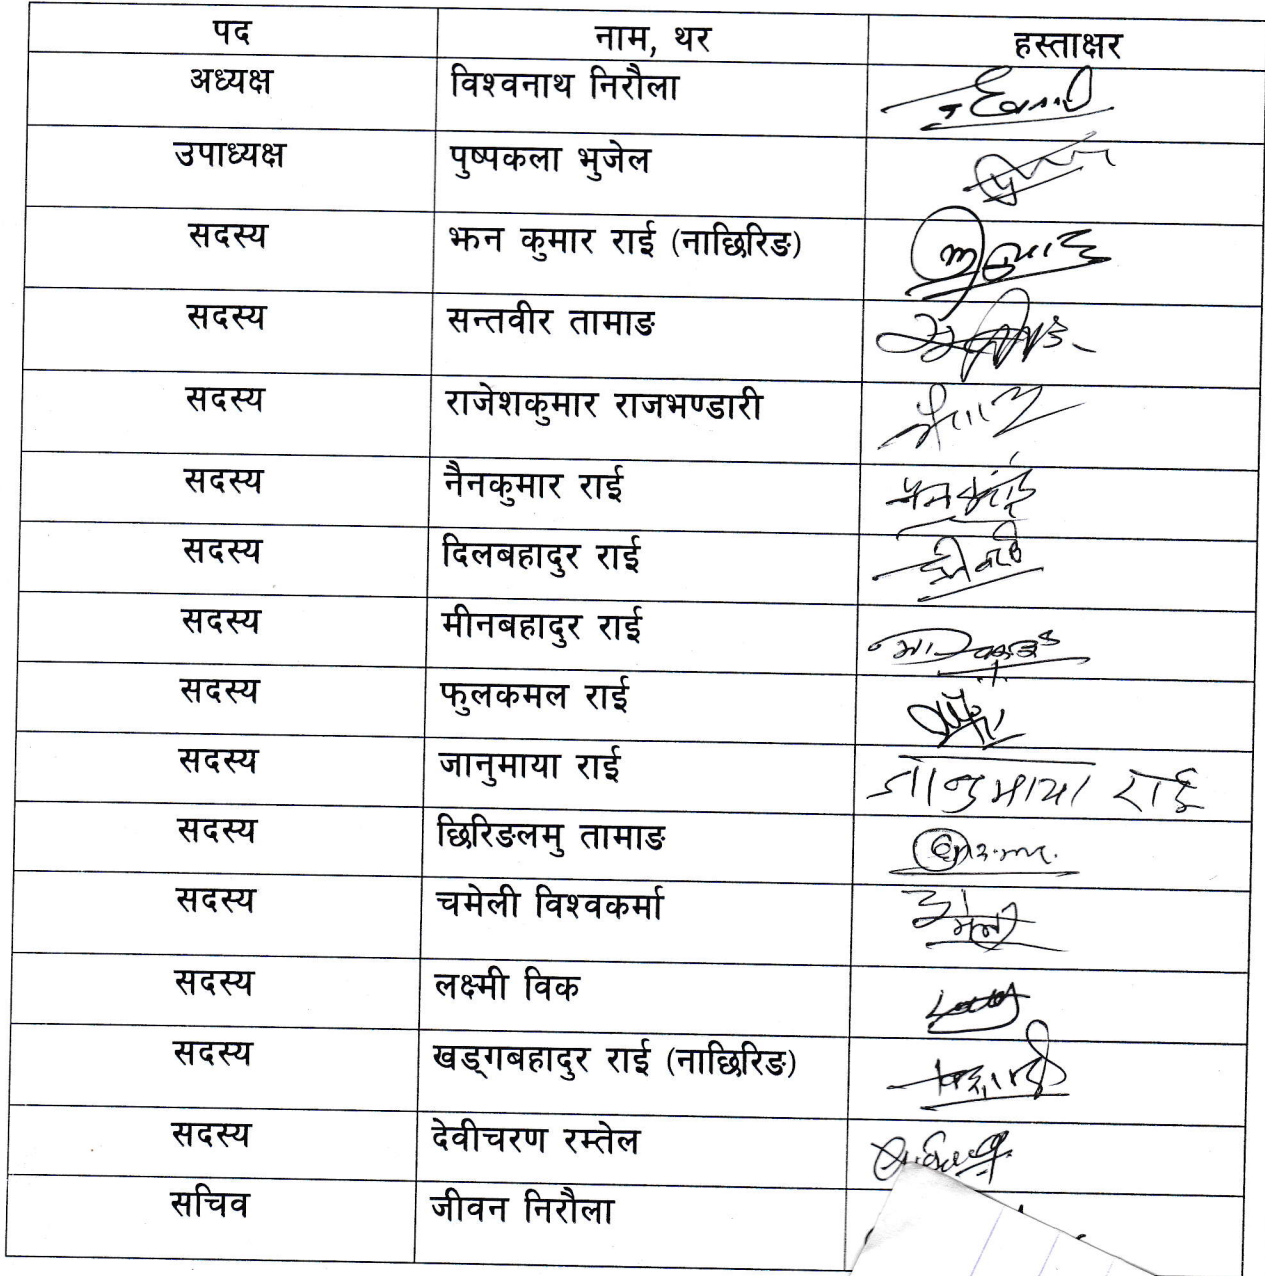 पद नाम, थर हस्ताक्षर
अध्यक्ष विश्वनाथ निरौला
उपाध्यक्ष पुष्पकला भुजेल
सदस्य झन कुमार राई (नाछिरिङ)
सदस्य सन्तवीर तामाङ
सदस्य राजेशकुमार राजभण्डारी
सदस्य नैनकुमार राई
सदस्य दिलबहादुर राई
सदस्य मीनबहादुर राई
सदस्य फुलकमल राई
सदस्य जानुमाया राई जानुमाया राई
सदस्य छिरिङलमु तामाङ
सदस्य चमेली विश्वकर्मा
सदस्य लक्ष्मी विक
सदस्य खड्गबहादुर राई (नाछिरिङ)
सदस्य देवीचरण रम्तेल
सचिव जीवन निरौला